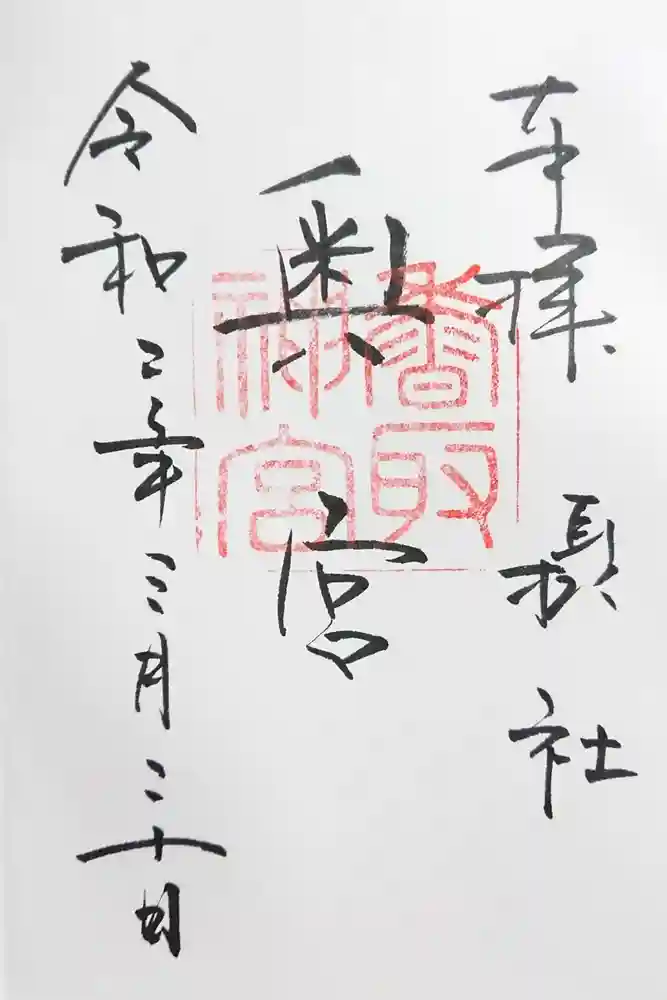 奉拝 攝社
奥宮
令和二年三月二十日
香取
神宮